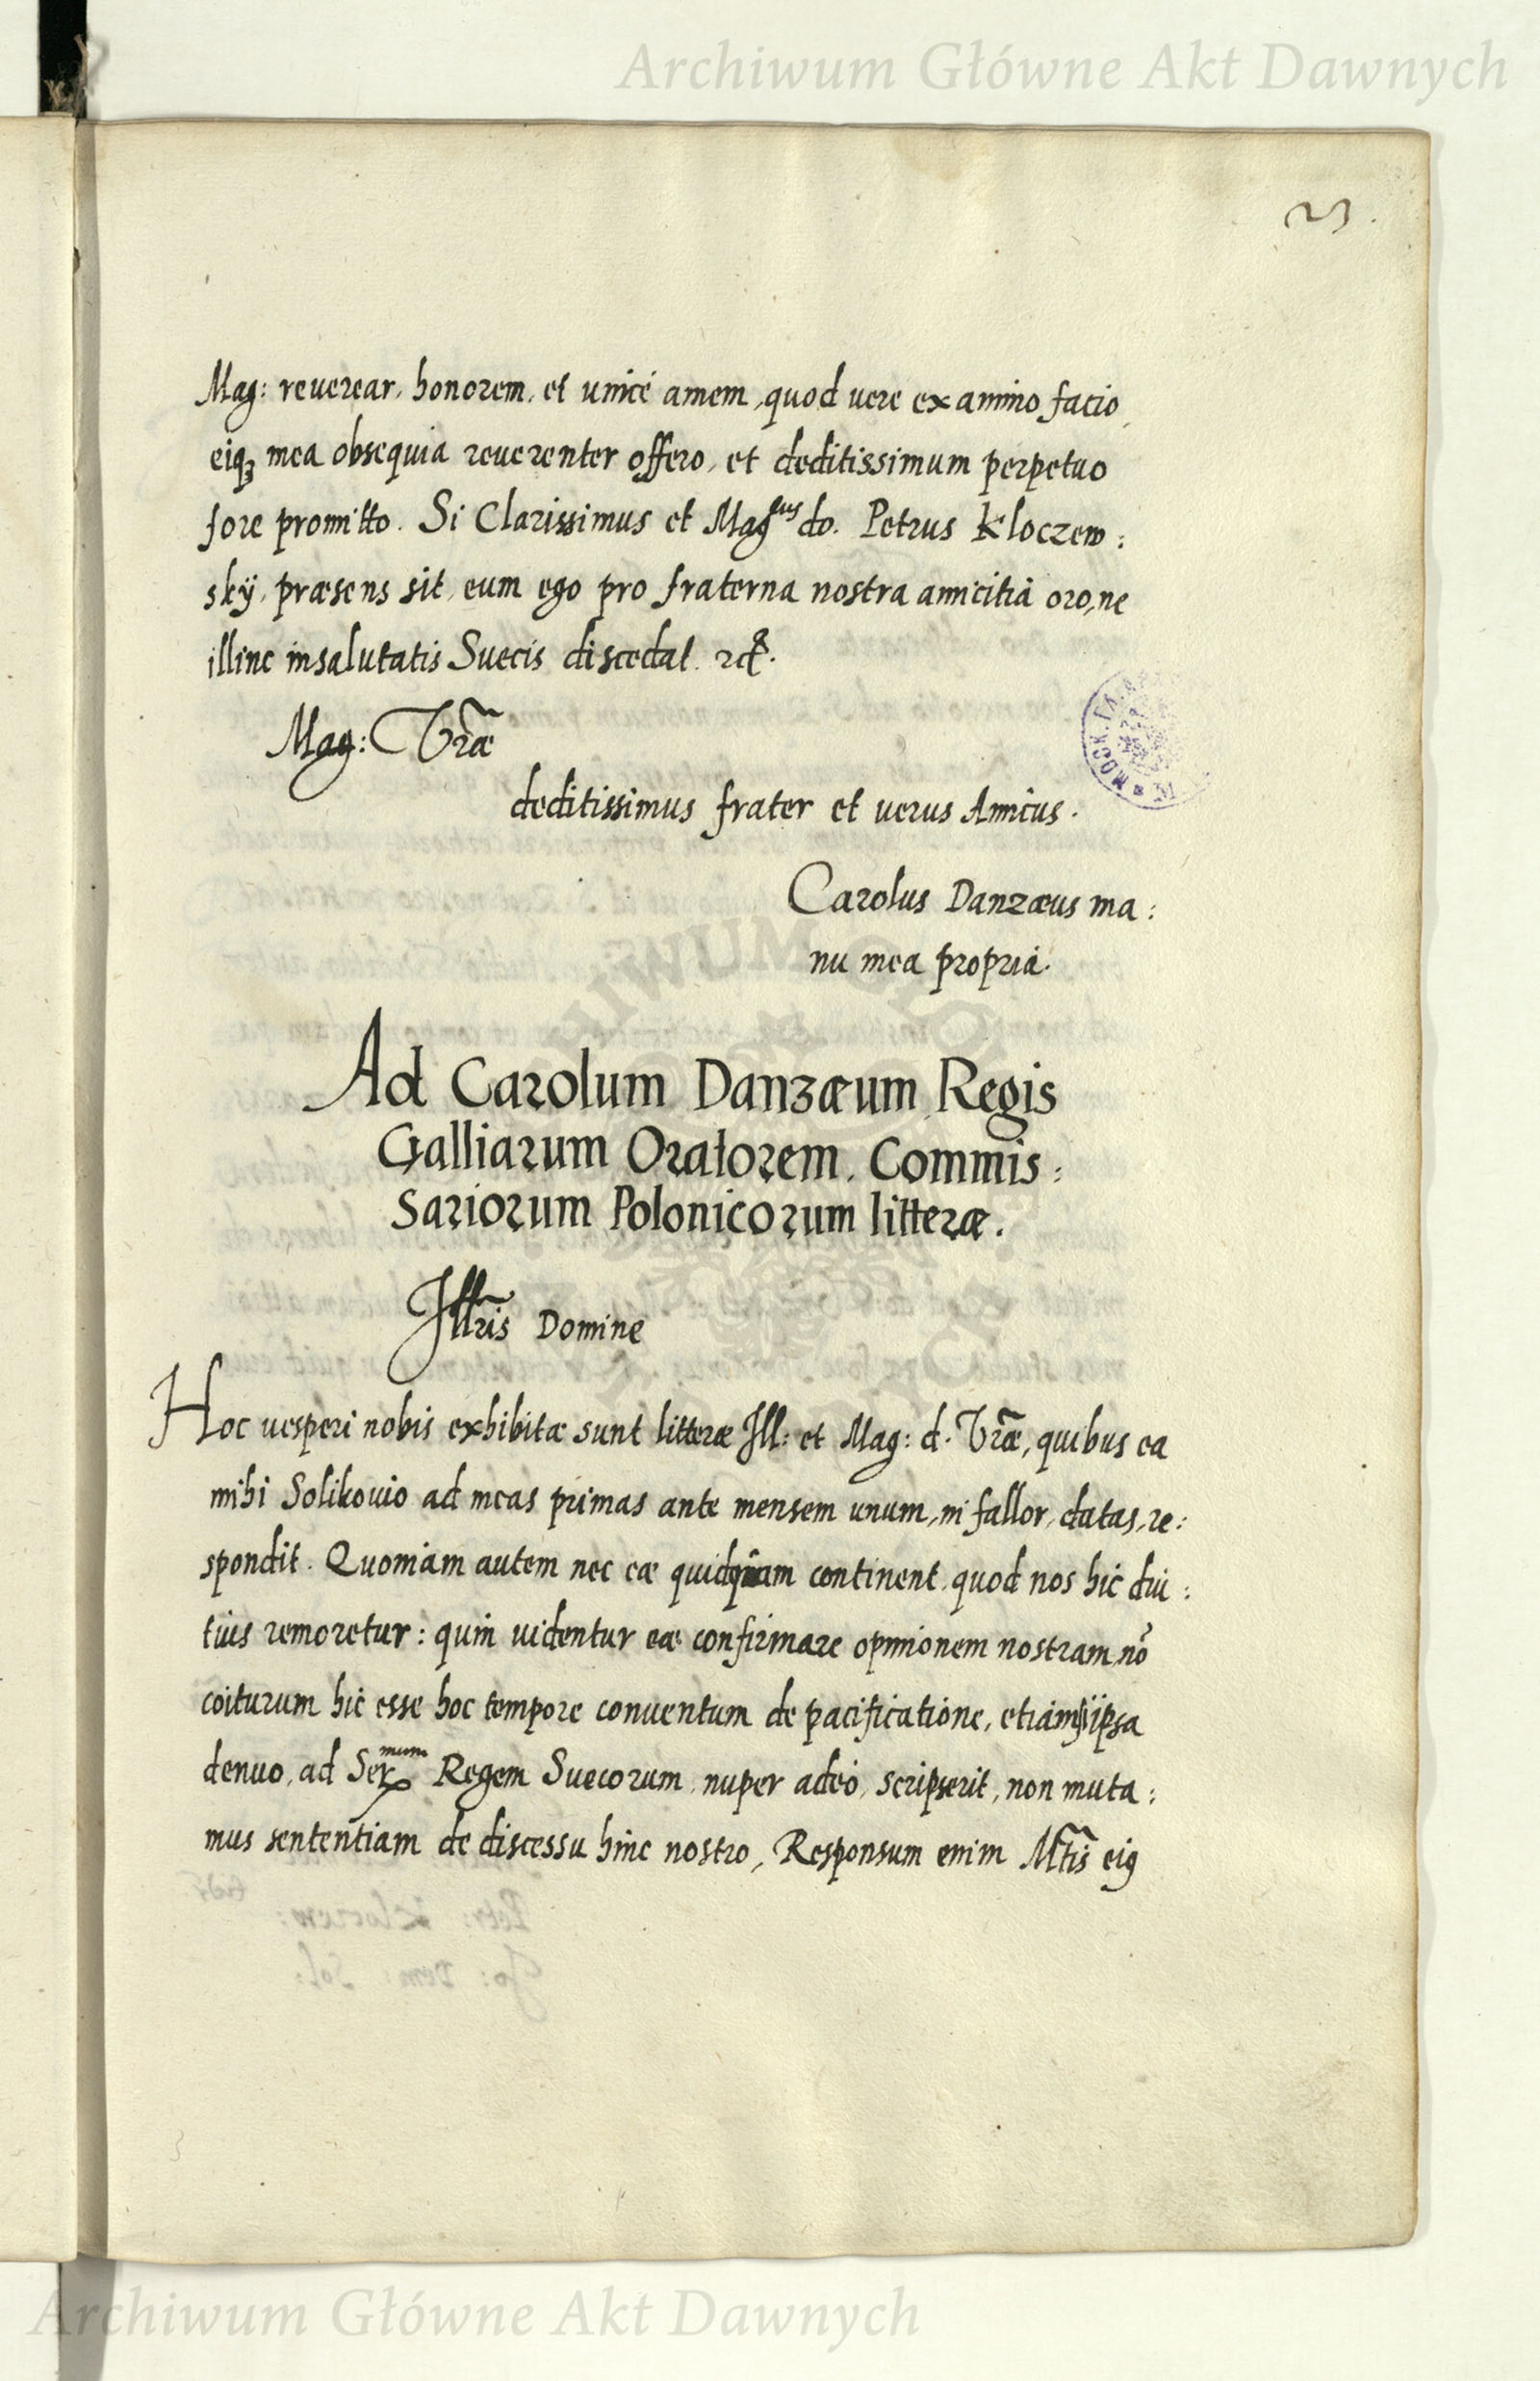 Archiwum Główne Akt Dawnych
23.
Mag: reuerear, honorem, et unicè amem, quod uere ex animo facio,
eiq; mea obsequia reuerenter offero, et deditissimum perpetuo
fore promitto. Si Clarissimus et Mag<sup>cus</sup> do. Petrus Kloczew:
skÿ, præsens sit, eum ego pro fraterna nostra amicitia oro, ne
illinc insalutatis Suecis discedat. etc.
Mag: Vræ
deditissimus frater et uerus Amicus.
Carolus Danzæus ma:
nu mea propria.
Ad Carolum Danzæum Regis
Galliarum Oratorem, Commis:
sariorum Polonicorum litteræ.
Illris Domine
Hoc uesperi nobis exhibitæ sunt litteræ Ill: et Mag: d. Vræ, quibus ea
mihi Solikouio ad meas primas ante mensem unum, ni fallor, datas, re:
spondit. Quoniam autem nec eæ quidquam continent, quod nos hic diu:
tius remoretur: quin uidentur eæ confirmare opinionem nostram, nõ
coiturum hic esse hoc tempore conuentum de pacificatione, etiamsi ipsa
denuo, ad Ser<sup>mum</sup> Regem Suecorum, nuper adeò, scripserit, non muta:
mus sententiam de discessu hinc nostro, Responsum enim Mtis eiꝰ
Archiwum Główne Akt Dawnych